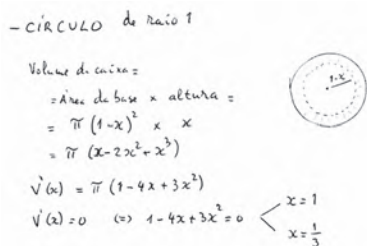 - CÍRCULO de raio 1
Volume da caixa =
= Área da base × altura =
= π (1-x)² × x
= π (x-2x²+x³)
1-x
V'(x) = π (1-4x+3x²)
V'(x)=0 (=) 1-4x+3x²=0
x=1
x=1/3